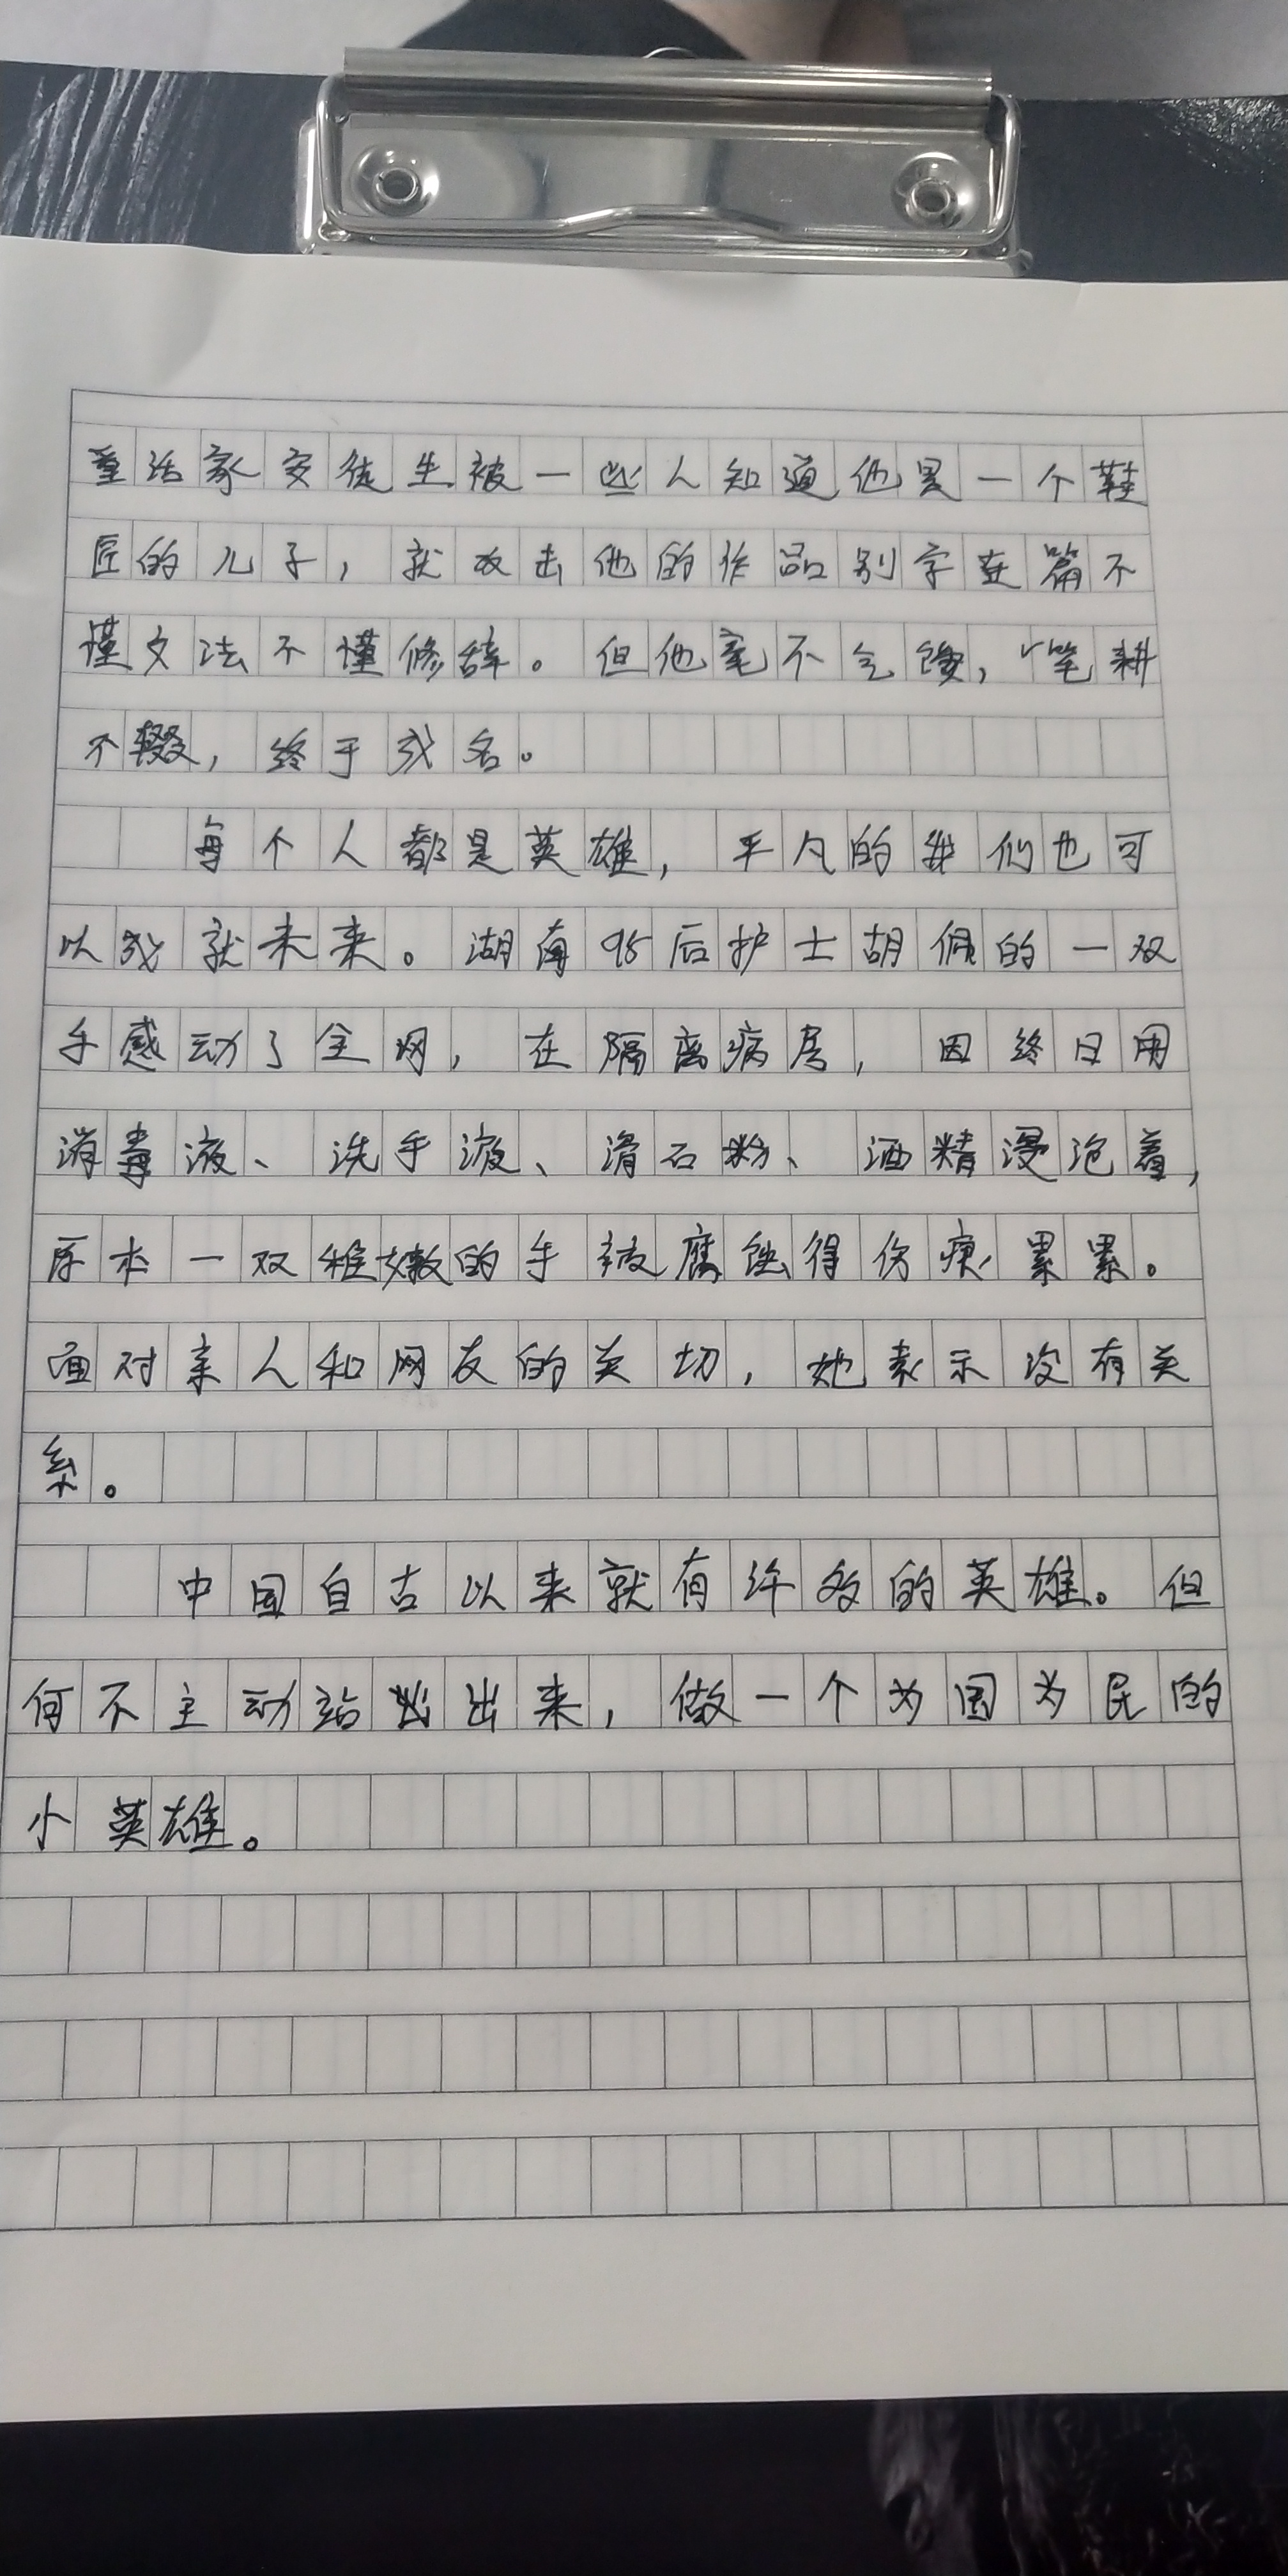 童话家安徒生被一些人知道他是一个鞋
匠的儿子，就攻击他的作品别字连篇不
懂文法不懂修辞。但他毫不气馁，笔耕
不辍，终于成名。
每个人都是英雄，平凡的我们也可
以成就未来。湖南95后护士胡佩的一双
手感动了全网，在隔离病房，因终日用
消毒液、洗手液、滑石粉、酒精浸泡着，
原本一双稚嫩的手被腐蚀得伤痕累累。
面对亲人和网友的关切，她表示没有关
系。
中国自古以来就有许多的英雄。但
何不主动站出出来，做一个为国为民的
小英雄。